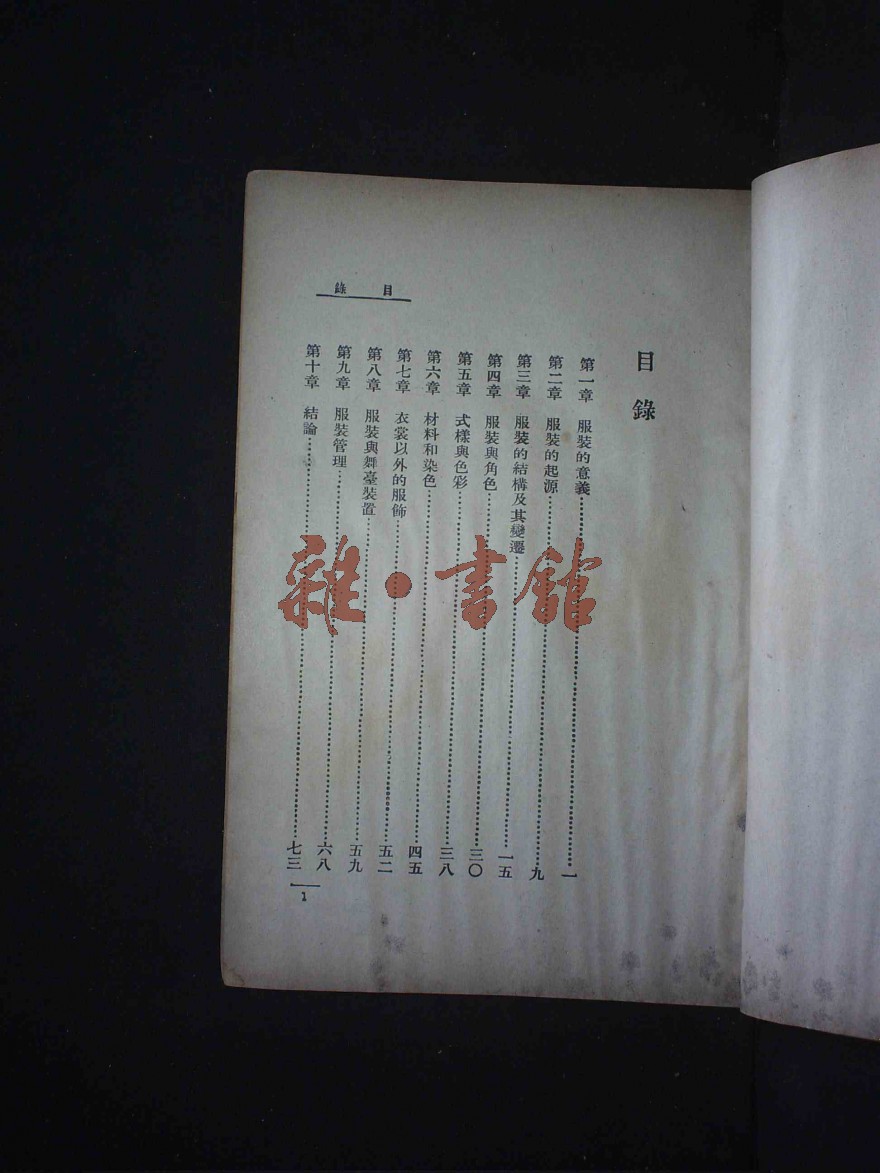 目錄
目錄
第一章 服裝的意義……一
第二章 服裝的起源……九
第三章 服裝的結構及其變遷……一五
第四章 服裝與角色……三〇
第五章 式樣與色彩……三八
第六章 材料和染色……四五
第七章 衣裳以外的服飾……五二
第八章 服裝與舞臺裝置……五九
第九章 服裝管理……六八
第十章 結論……七三
1
雜·書館